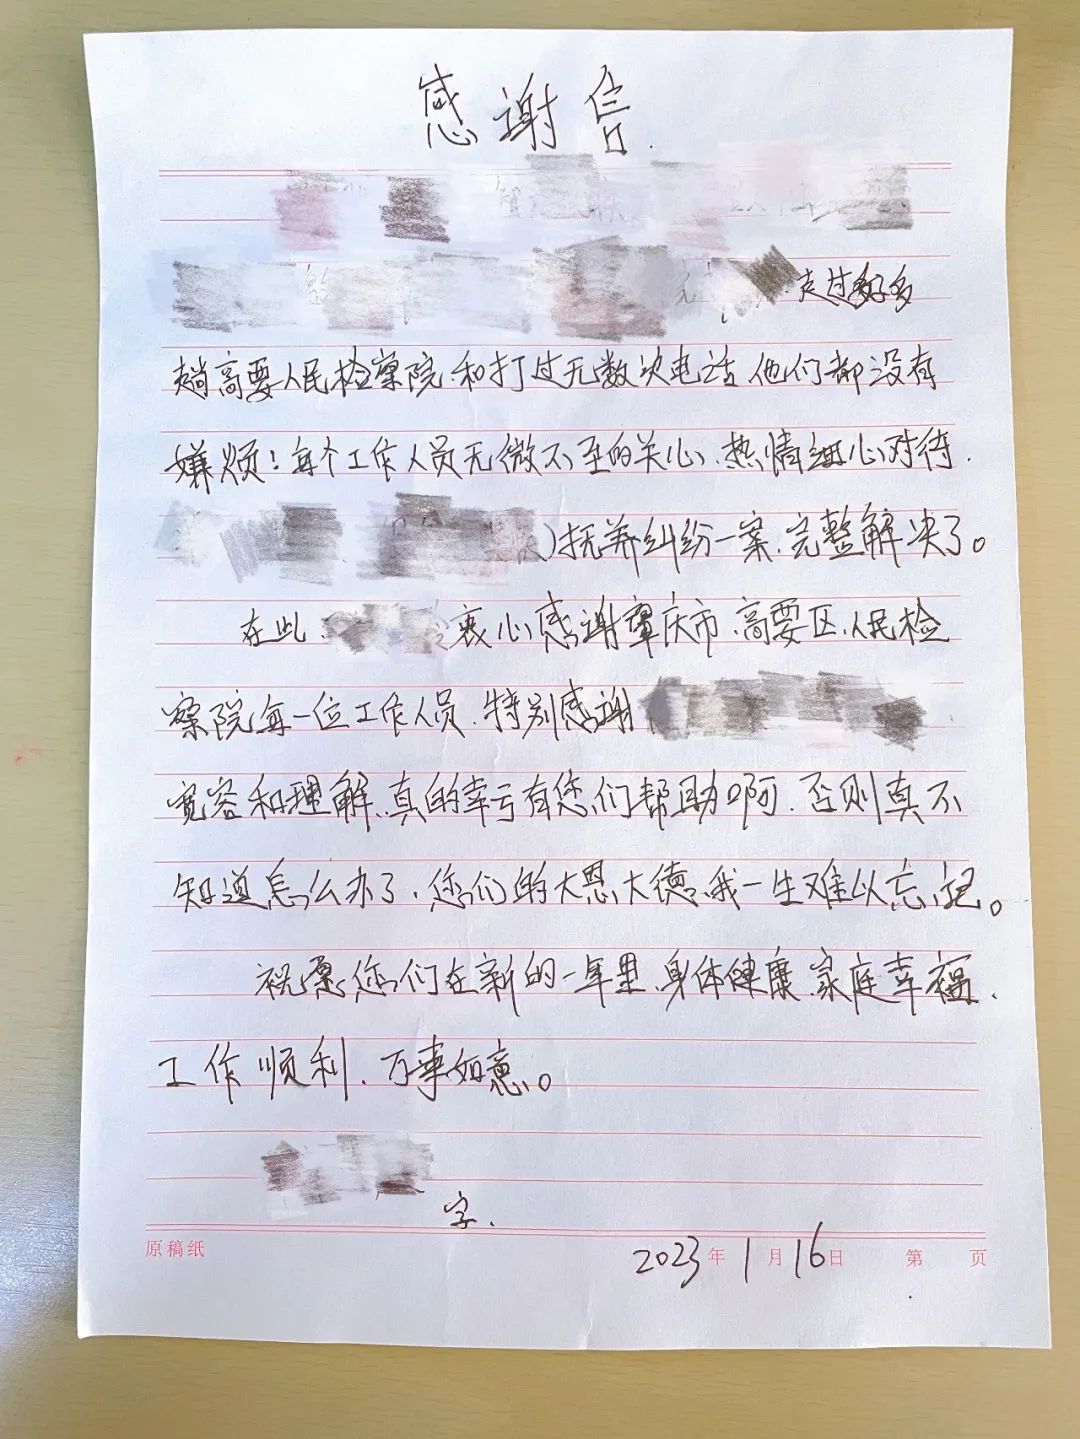 感谢信.
走过好多
趟高要人民检察院、和打过无数次电话、他们都没有
嫌烦！每个工作人员无微不至的关心、热情细心对待.
)抚养纠纷一案、完整解决了。
在此、衷心感谢肇庆市、高要区、人民检
察院每一位工作人员、特别感谢
宽容和理解、真的幸亏有您们帮助啊、否则真不
知道怎么办了、您们的大恩大德、我一生难以忘记。
祝愿、您们在新的一年里、身体健康、家庭幸福、
工作顺利、万事如意。
字.
原稿纸 2023年1月16日 第 页